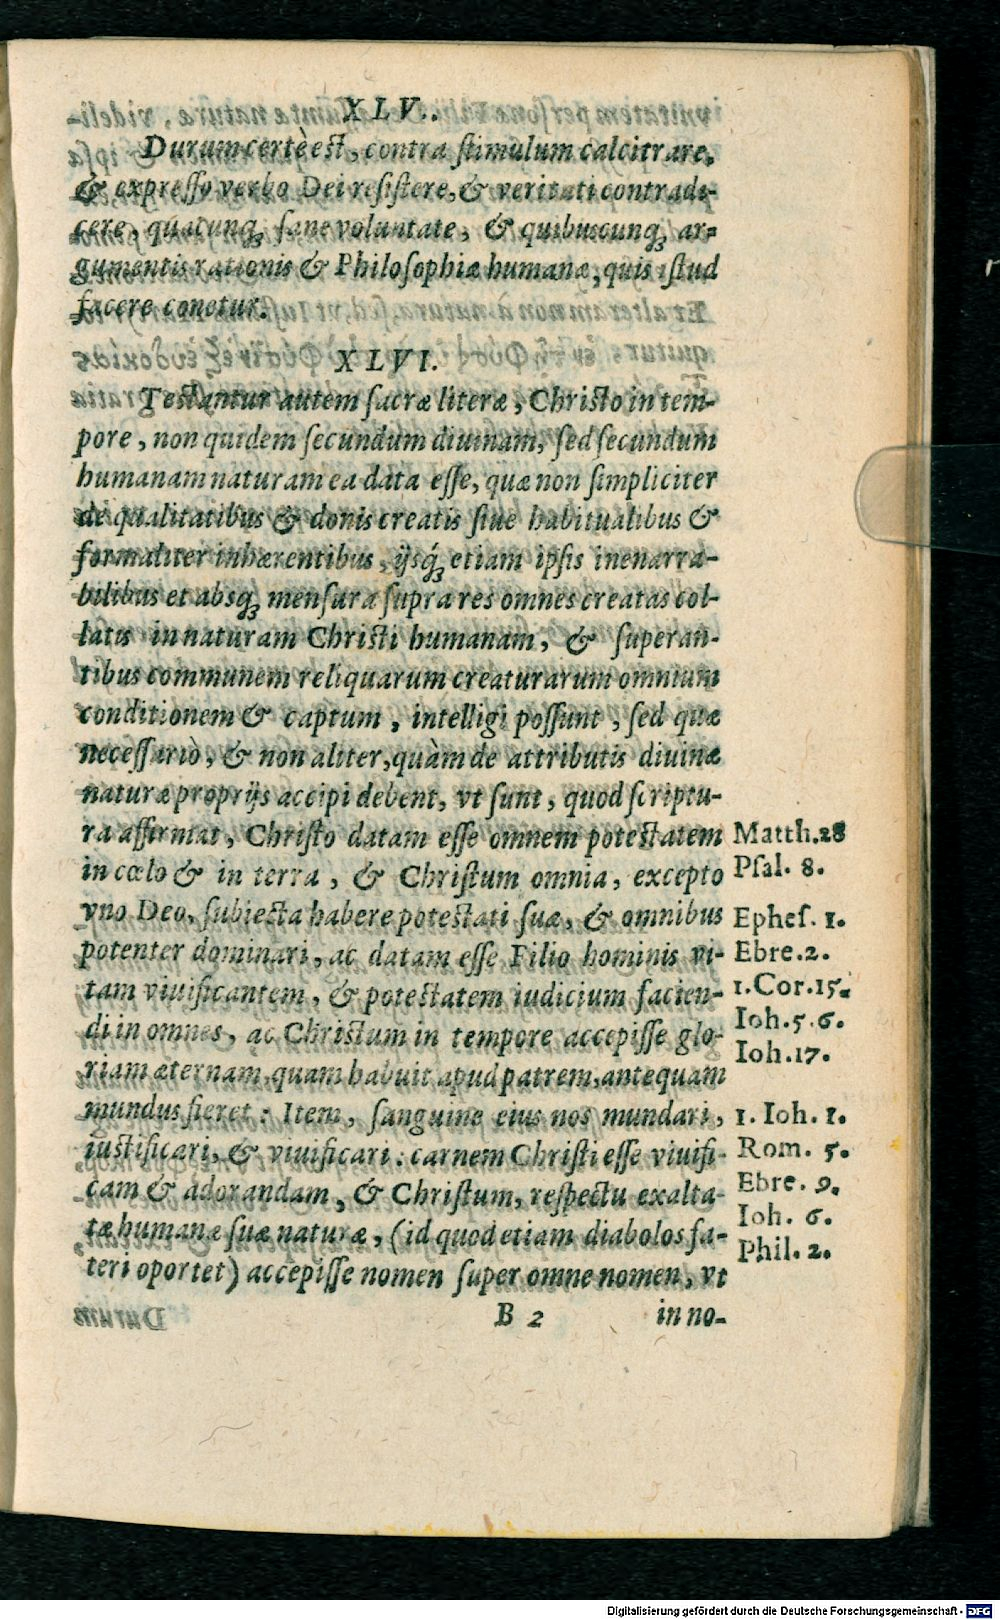 XLV.
Durum certè est, contra ſtimulum calcitrare,
& expreſſo verbo Dei reſiſtere, & veritati contradi-
cere, quacunqꝫ ſane voluntate, & quibuscunqꝫ ar-
gumentis rationis & Philoſophiæ humanæ, quis iſtud
facere conetur.
XLVI.
Teſtantur autem ſacræ literæ, Chriſto in tem-
pore, non quidem ſecundum diuinam, ſed ſecundum
humanam naturam ea data eſſe, quæ non ſimpliciter
de qualitatibus & donis creatis ſiue habitualibus &
formaliter inhærentibus, ijsq́ꝫ etiam ipſis inenarra-
bilibus et absqꝫ menſura ſupra res omnes creatas col-
latis in naturam Chriſti humanam, & ſuperan-
tibus communem reliquarum creaturarum omnium
conditionem & captum, intelligi poſſunt, ſed quæ
neceſſariò, & non aliter, quàm de attributis diuinæ
naturæ proprijs accipi debent, vt ſunt, quod ſcriptu-
ra affirmat, Chriſto datam eſſe omnem poteſtatem
in cœlo & in terra, & Chriſtum omnia, excepto
vno Deo, ſubiecta habere poteſtati ſuæ, & omnibus
potenter dominari, ac datam eſſe Filio hominis vi-
tam viuificantem, & poteſtatem iudicium facien-
di in omnes, ac Chriſtum in tempore accepiſſe glo-
riam æternam, quam habuit apud patrem, antequam
mundus fieret: Item, ſanguine eius nos mundari,
iuſtificari, & viuificari: carnem Chriſti eſſe viuifi-
cam & adorandam, & Chriſtum, reſpectu exalta-
tæ humanæ ſuæ naturæ, (id quod etiam diabolos fa-
teri oportet) accepiſſe nomen ſuper omne nomen, vt
B 2 in no-
Matth.28
Pſal. 8.
Epheſ. 1.
Ebre.2.
1.Cor.15.
Ioh.5.6.
Ioh.17.
1. Ioh. 1.
Rom. 5.
Ebre. 9.
Ioh. 6.
Phil. 2.
Digitalisierung gefördert durch die Deutsche Forschungsgemeinschaft - DFG